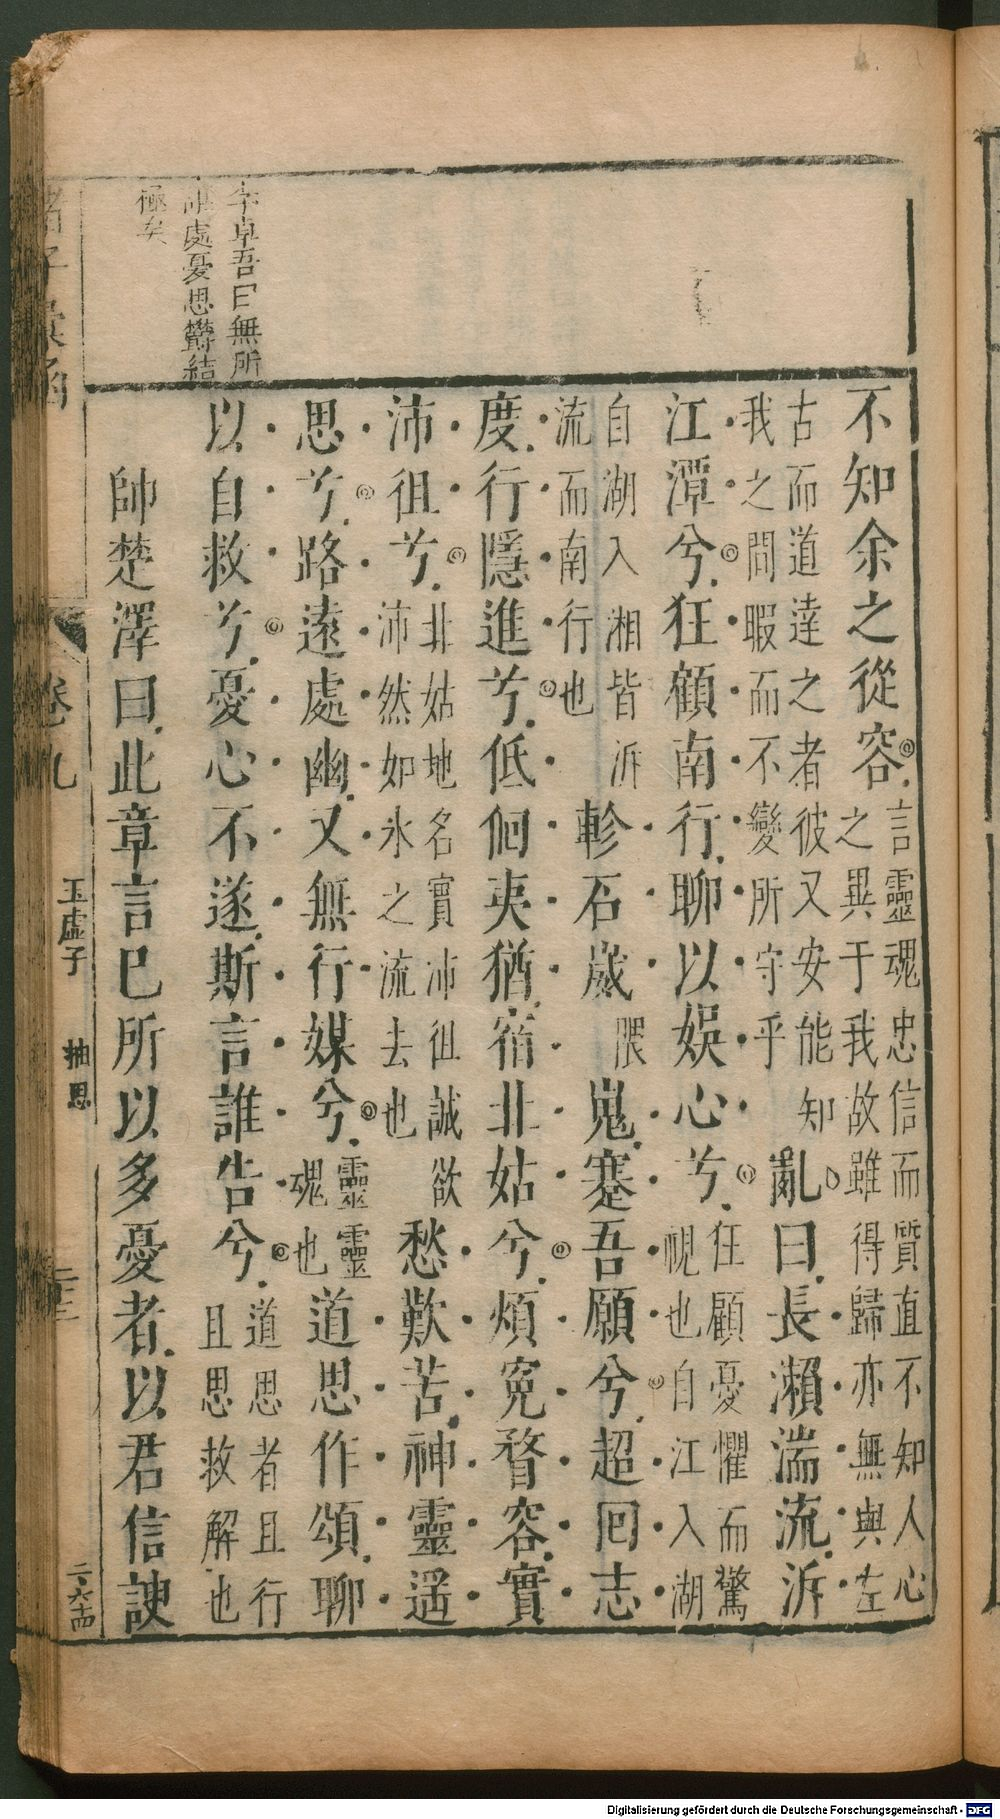 不知余之從容言靈魂忠信而質直不知人心之異于我故雖得歸亦無與左
古而道達之者彼又安能知我之間暇而不變所守乎亂曰長瀨湍流泝
江潭兮狂顧南行聊以娛心兮狂顧憂懼而驚視也自江入湖
自湖入湘皆泝流而南行也軫石崴䃬嵬蹇吾願兮超回志
度行隱進兮低佪夷猶宿北姑兮煩冤瞀容實
沛徂兮北姑地名實沛徂誠欲沛然如水之流去也愁歎苦神靈遥
思兮路遠處幽又無行媒兮靈靈魂也道思作頌聊
以自救兮憂心不遂斯言誰告兮道思者且行且思救解也
帥楚澤曰此章言巳所以多憂者以君信諛
李卓吾曰無所
訴處憂思欝結
極矣
諸子彙函
卷九
玉虛子
抽思
二十三